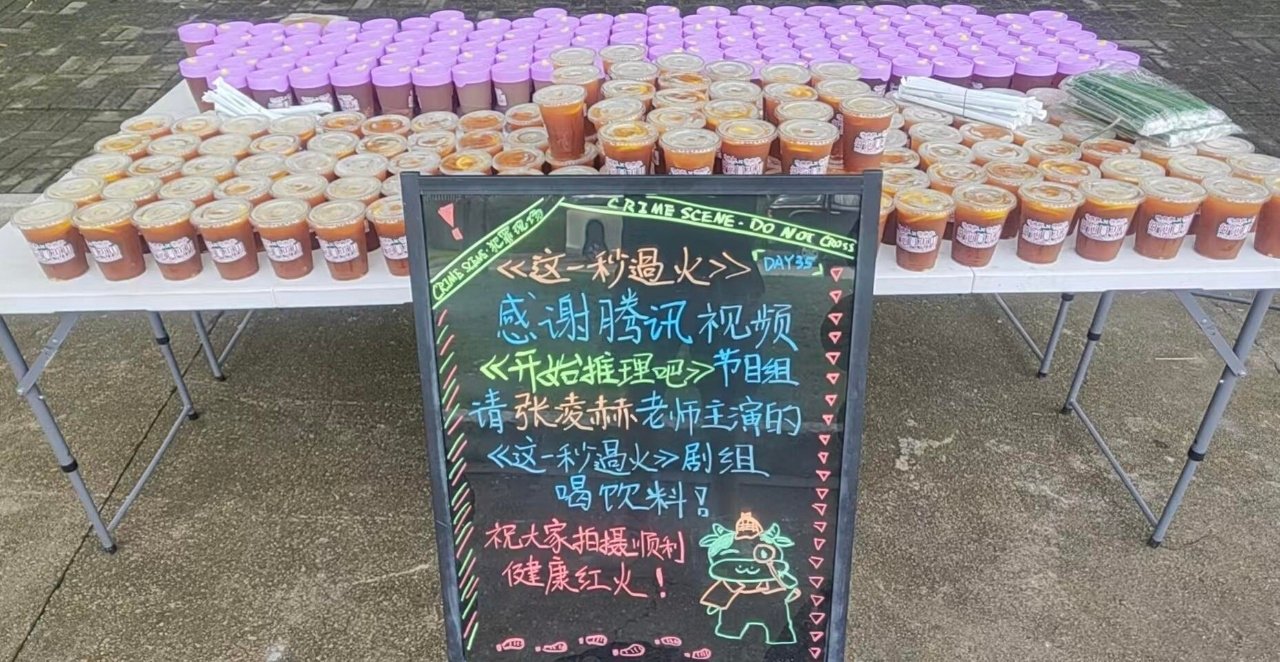 CRIME SCENE·犯罪现场
CRIME SCENE·DO NOT CROSS
《这一秒過火》
DAY35
感谢腾讯视频
《开始推理吧》节目组
请张凌赫老师主演的
《这一秒過火》剧组
喝饮料！
祝大家拍摄顺利
健康红火！